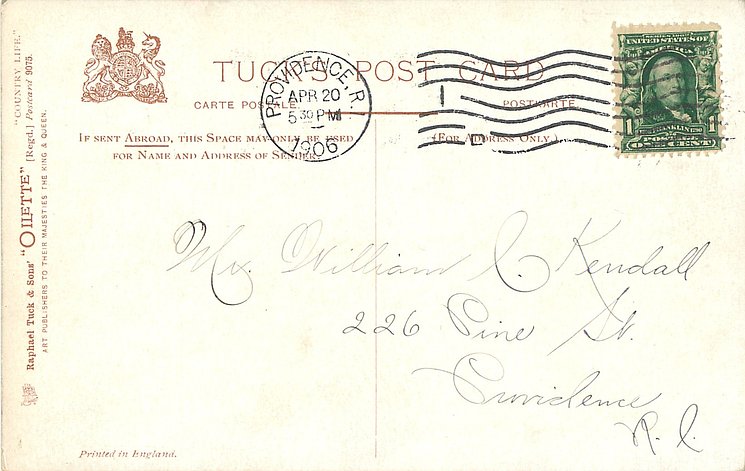 TUCK'S POST CARD
CARTE POSTALE.
POSTKARTE.
IF SENT ABROAD, THIS SPACE MAY ONLY BE USED
FOR NAME AND ADDRESS OF SENDER.
(FOR ADDRESS ONLY.)
PROVIDENCE, R.
APR 20
5 30 PM
1906
UNITED STATES OF
AMERICA
1
FRANKLIN
1
ONE CENT
Mr. William C. Kendall
226 Pine St.
Providence
R. I.
Raphael Tuck & Sons' "OILETTE" [Regd.] Postcard 9075.
"COUNTRY LIFE."
ART PUBLISHERS TO THEIR MAJESTIES THE KING & QUEEN.
Printed in England.